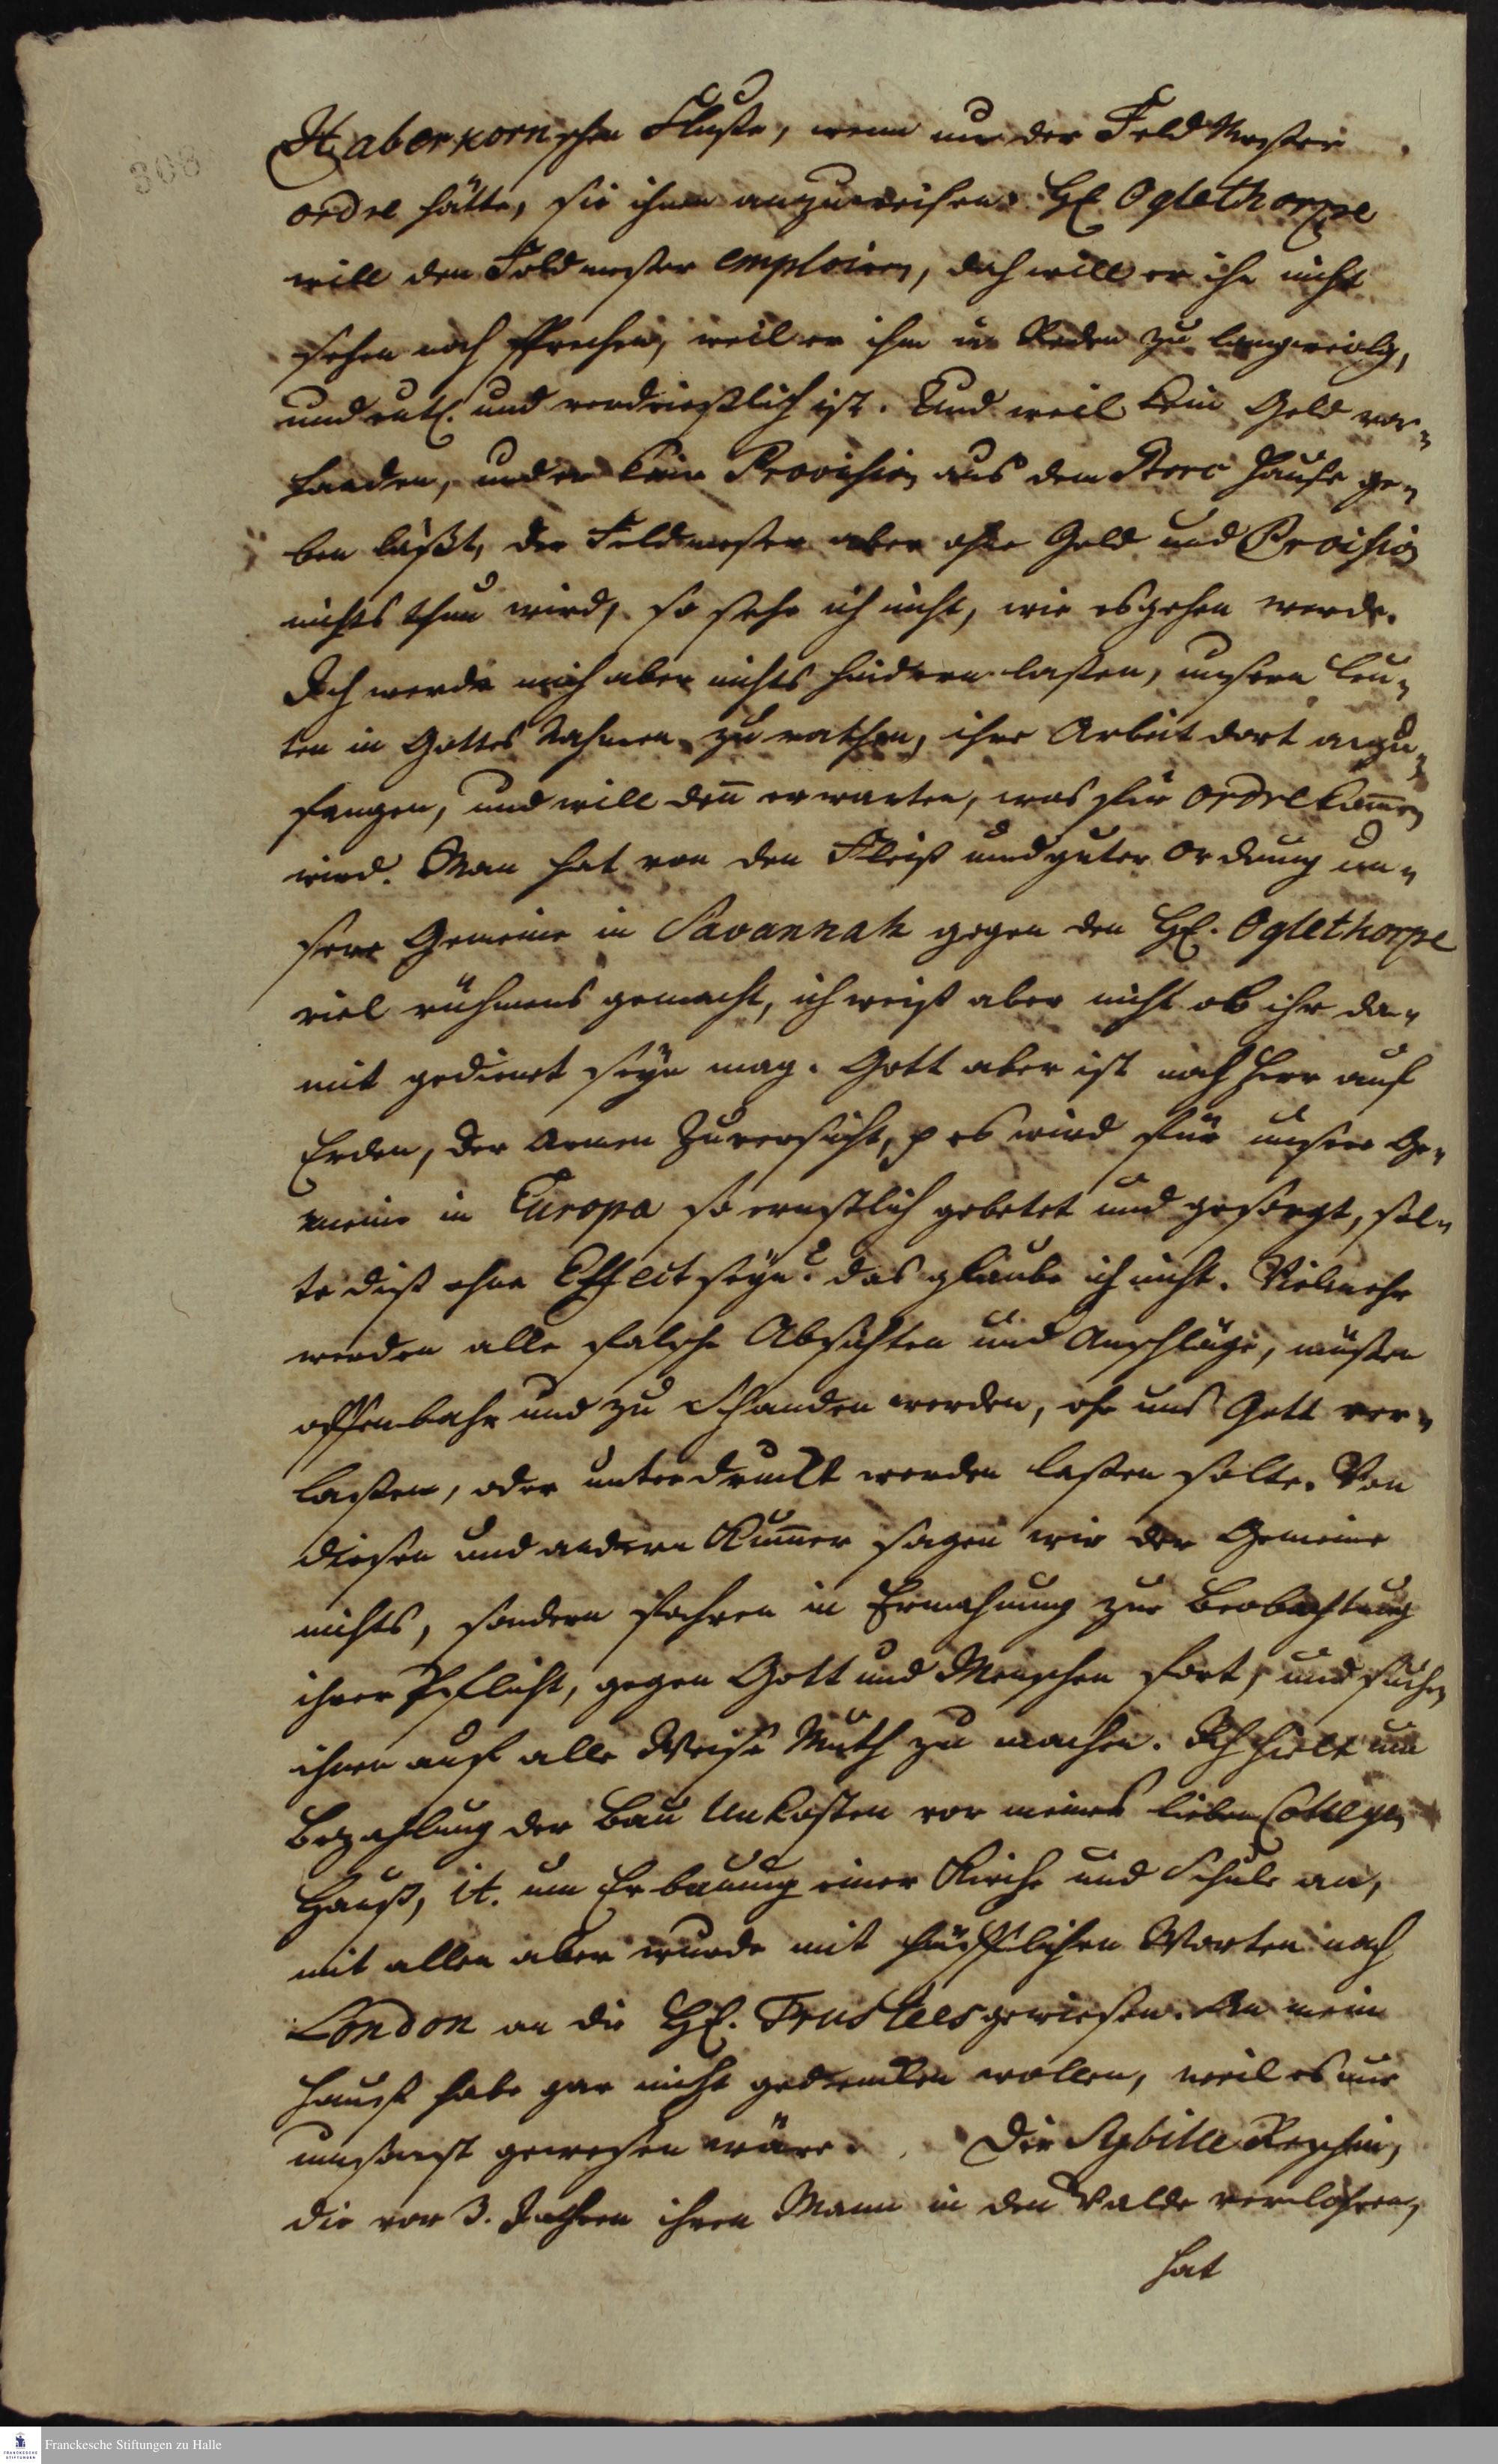 308
Haberkornschen Fluße, wenn nur der Feld Meßer
ordre hätte, sie ihnen anzuweisen. HE. Oglethorpe
will den Feldmeßer emploiren, doch will er ihn nicht
sehen noch sprechen, weil er ihm im Reden zu langweilig,
und verdrießlich ist. Und weil kein Geld vor-
handen, und er keine Provision aus dem Store Hause ge-
ben läßt, der Feldmeßer aber ohne Geld und Provision
nichts thun wird, so sehe ich nicht, wie es gehen werde.
Ich werde mich aber nichts hindern laßen, unsern Leu-
ten in Gottes Nahmen zu rathen, ihre Arbeit dort anzu-
fangen, und will deñ erwarten, was für ordre kom̄en
wird. Man hat von den Fleiß und guter Ordnung un-
serer Gemeine in Savannah gegen den HE. Oglethorpe
viel rühmens gemacht, ich weiß aber nicht ob ihr da-
mit gedienet seyn mag. Gott aber ist noch Herr auf
Erden, der Armen Zuversicht, p es wird für unsere Ge-
meine in Europa so ernstlich gebetet und gesorgt, sol-
te diß ohne Effect seyn? das glaube ich nicht. Vielmehr
werden alle falsche Absichten und Anschläge, müßen
offenbahr und zu Schanden werden, ehe uns Gott ver-
laßen, oder unterdruckt werden laßen solte. Von
diesen und andern Kum̄er sagen wir der Gemeine
nichts, sondern fahren in Ermahnung zur Beobachtung
ihrer Pflicht, gegen Gott und Menschen fort, und suchen
ihnen auf alle Weise Muth zu machen. Ich hielt um
Bezahlung der Bau Unkosten vor meines lieben Collegen
Hauß, it. um Erbauung einer Kirche und Schule an,
mit allen aber wurde mit höfflichen Worten nach
London an die HE. Trustees gewiesen. An mein
Hauß habe gar nicht gedencken wollen, weil es nur
umsonst gewesen wäre. Die Sybille Reschin,
die vor 3. Jahren ihren Mann in den Walde verlohren,
hat
Franckesche Stiftungen zu Halle